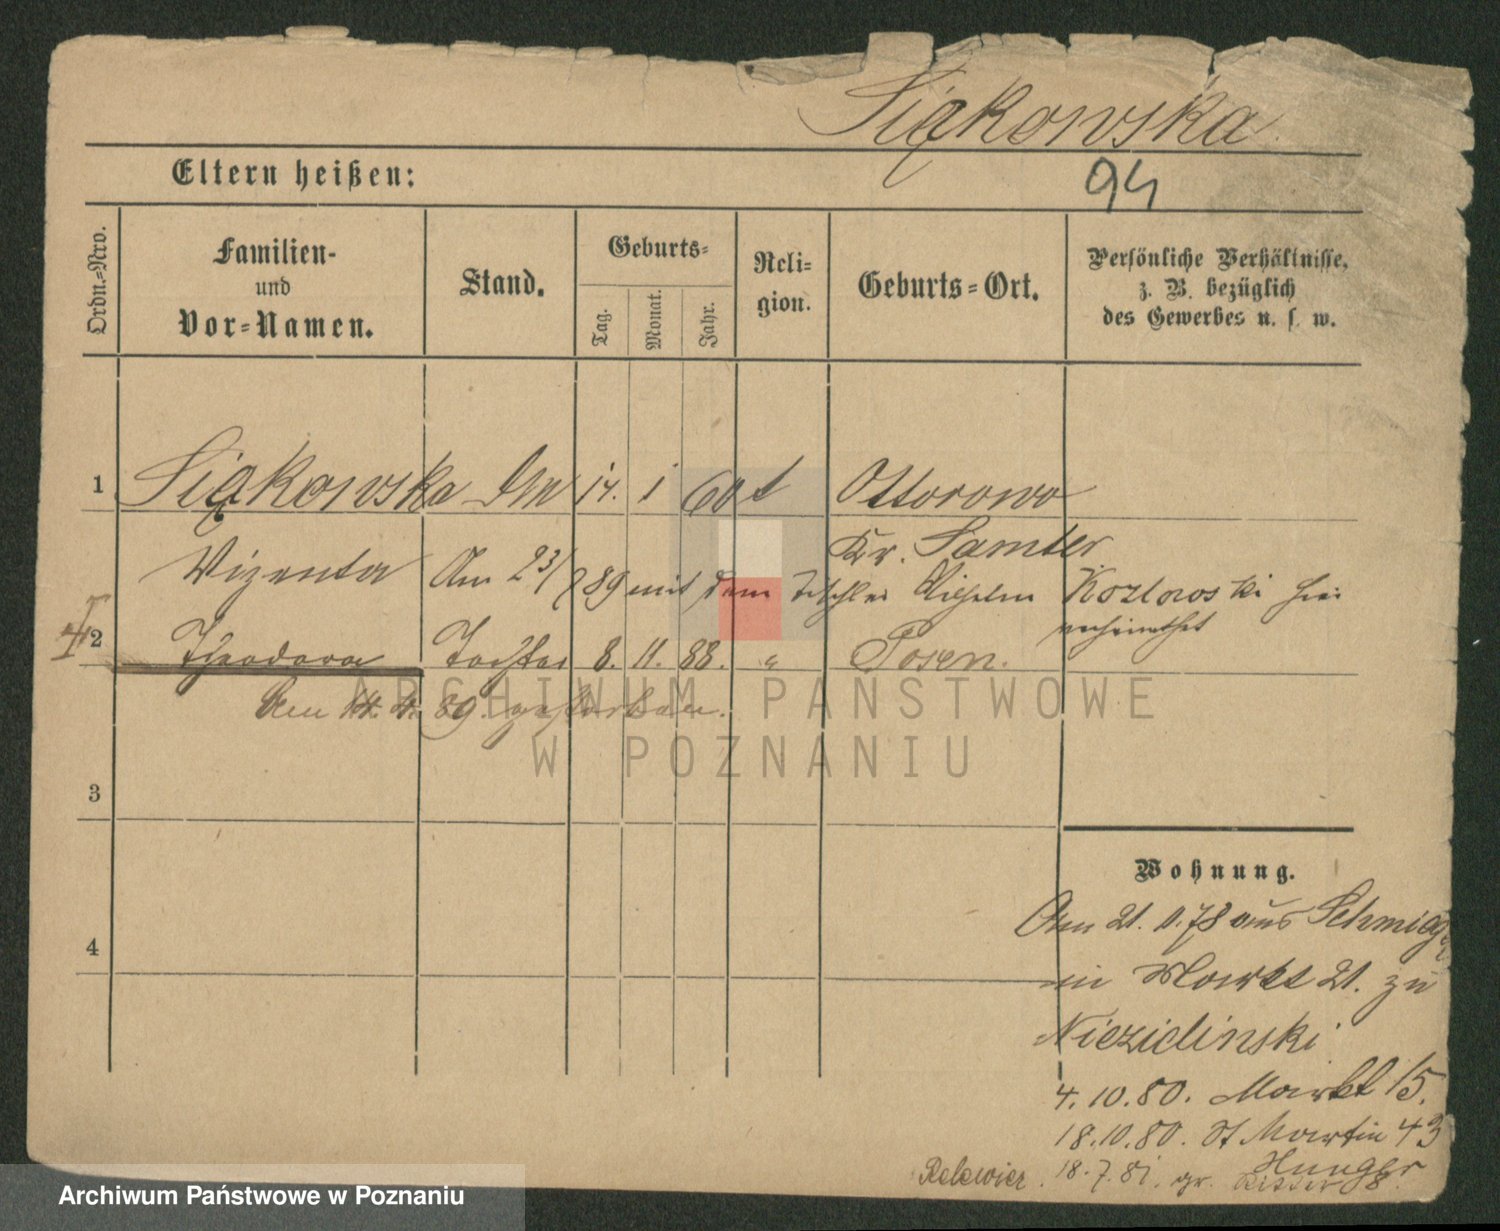 Siąkowska
Eltern heißen:
94
Ordn.-Nro.
Familien-
und
Vor-Namen.
Stand.
Geburts-
Tag.
Monat.
Jahr.
Reli-
gion.
Geburts-Ort.
Persönliche Verhältnisse,
z. B. bezüglich
des Gewerbes u. s. w.
1 Siąkowska 14. 1 60 Ottorowo
Kr. Samter
Vizenta Am 23/7 89 mit dem Tischler Wilhelm Kozlowski hier
verheirathet
2 Theodora Tochter 8. 11. 88. " Posen.
Am 14. 4. 89. gestorben.
ARCHIWUM PAŃSTWOWE
W POZNANIU
3
4
Wohnung.
Am 21. 1. 78 aus Schmiegel
in Markt 21. zu
Niezidinski
4. 10. 80. Markt 15.
18. 10. 80. St Martin 43
Hunger
18. 7. 81. gr. Ritter 8.
Archiwum Państwowe w Poznaniu